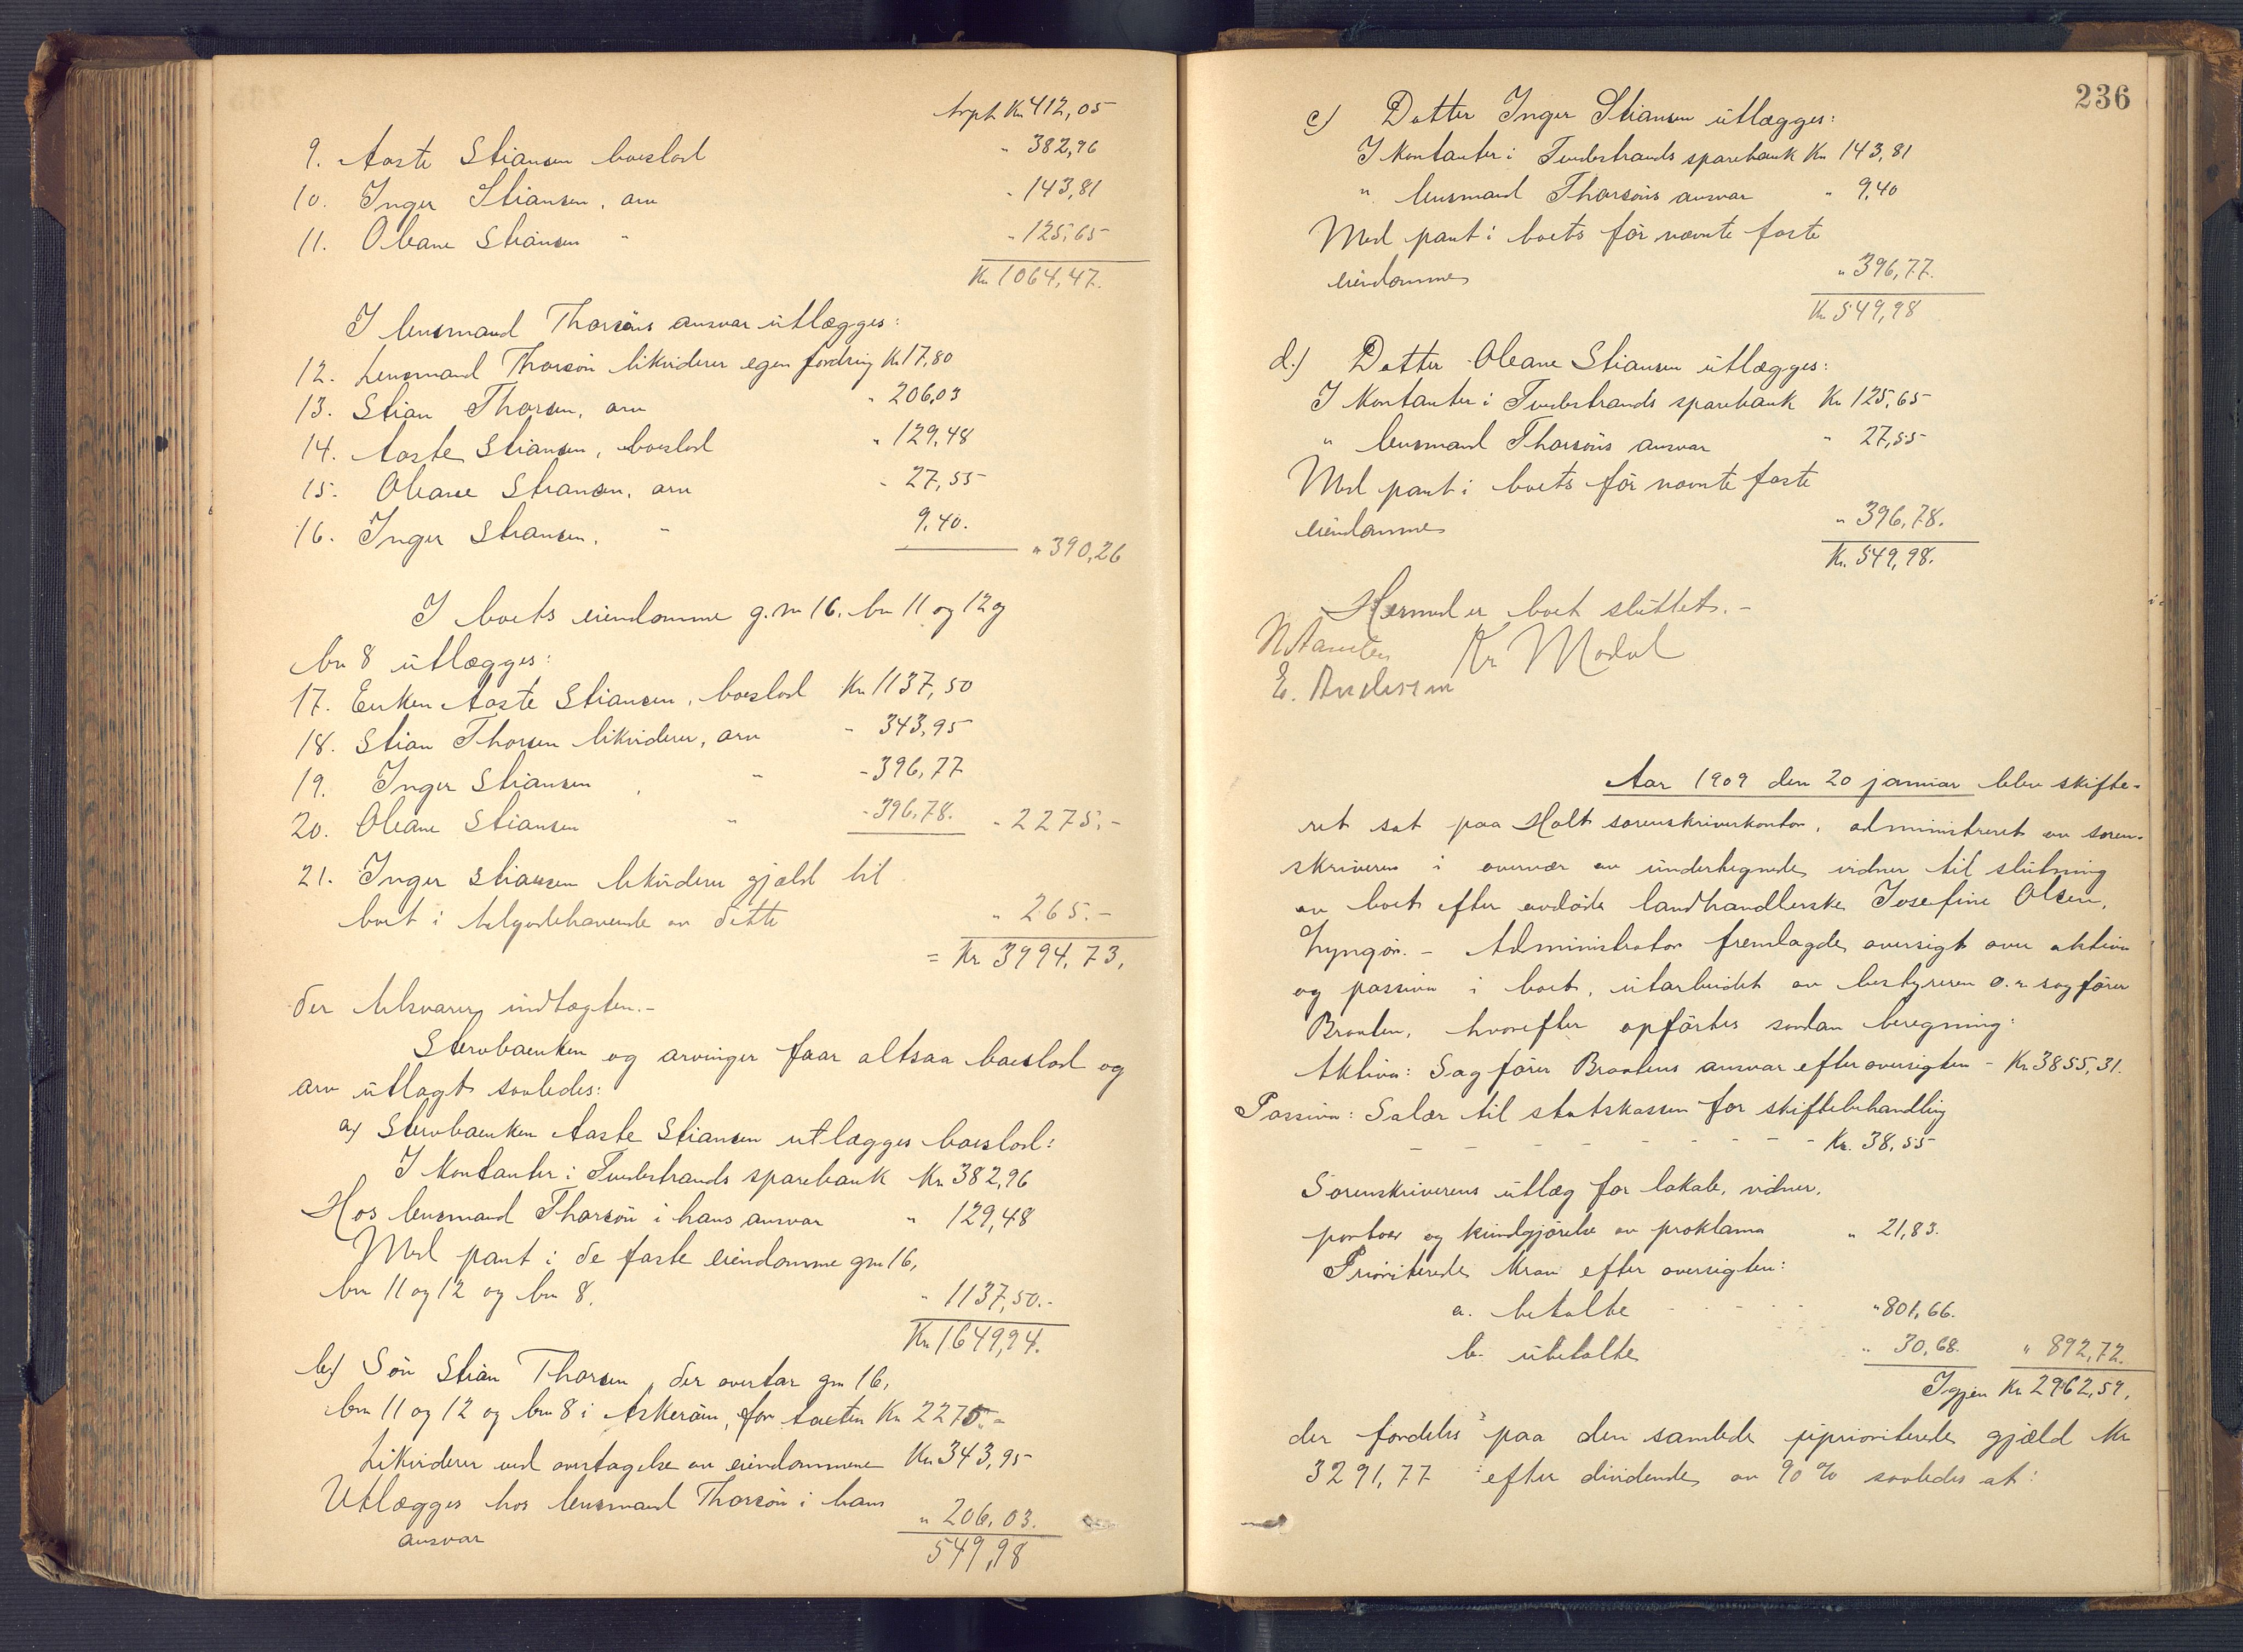 trpt Kr 412,05
9. Aaste Stiansen boeslod " 382,96
10. Inger Stiansen, arv " 143,81
11. Oleane Stiansen " " 125,65
Kr 1064,47.
I lensmand Thorsöns ansvar utlægges:
12. Lensmand Thorsön likviderer egen fordring Kr 17,80
13. Stian Thorsen, arv " 206,03
14. Aaste Stiansen, boeslod " 129,48
15. Oleane Stiansen, arv " 27,55
16. Inger Stiansen, " 9,40. " 390,26
I boets eiendomme g.nr 16. bn 11 og 12 og
bn 8 utlægges:
17. Enken Aaste Stiansen, boeslod Kr 1137,50
18. Stian Thorsen likviderer, arv - 343,95
19. Inger Stiansen , " - 396,77
20. Oleane Stiansen " - 396,78. - 2275,-
21. Inger Stiansen likviderer gjæld til
boet i tilgodehavende av dette " 265.-
= Kr 3994,73,
der tilsvarer indtægten.-
Stervboenken og arvinger faar altsaa boeslod og
arv utlagt saaledes:
a) Stervboenken Aaste Stiansen utlægges boeslod:
I Kontanter i Tvedestrands sparebank Kr 382,96
Hos lensmand Thorsön i hans ansvar " 129,48
Med pant i de faste eiendomme gn 16,
bn 11 og 12 og bn 8. " 1137,50.-
Kr 1649,94.
b) Sön Stian Thorsen, der overtar gn 16,
bn 11 og 12 og bn 8 i Askeröen, for taxten Kr 2275.-
Likviderer ved overtagelse av eiendommene Kr 343,95
Utlægges hos lensmand Thorsön i hans
ansvar " 206,03.
549,98
236
c) Datter Inger Stiansen utlægges:
I Kontanter i Tvedestrands sparebank Kr 143,81
" lensmand Thorsöns ansvar " 9,40
Med pant i boets för nævnte faste
eiendomme " 396,77.
Kr 549,98
d.) Datter Oleane Stiansen utlægges:
I Kontanter i Tvedestrands sparebank Kr 125,65
" lensmand Thorsöns ansvar " 27,55
Med pant i boets för nævnte faste
eiendomme " 396,78.
Kr. 549,98.
Hermed er boet sluttet.-
Kr Modal
E. Andersen
Aar 1909 den 20 januar blev skifte-
ret sat paa Holt sorenskriverkontor, administreret av soren-
skriveren i overvær av undertegnede vidner til slutning
av boet efter avdöde landhandlerske Josefine Olsen,
Lyngör. - Administrator fremlagde oversigt over aktiva
og passiva i boet, utarbeidet av bestyreren o.r. sagförer
Braaten, hvorefter opförtes saadan beregning:
Aktiva: Sagförer Braatens ansvar efter oversigten - Kr 3855,31.
Passiva: Salær til statskassen for skiftebehandling
- - - - - - - - - Kr. 38,55
Sorenskriverens utlæg for lokale, vidner,
portoer og kundgjörelse av proklama " 21,83.
Prioriterede krav efter oversigten:
a. betalte - - - - " 801,66.
b. ubetalte " 30,68. " 892,72.
Igjen Kr 2962,59,
der fordeles paa den samlede uprioriterede gjæld Kr
3291,77 efter dividende av 90 % saaledes at: